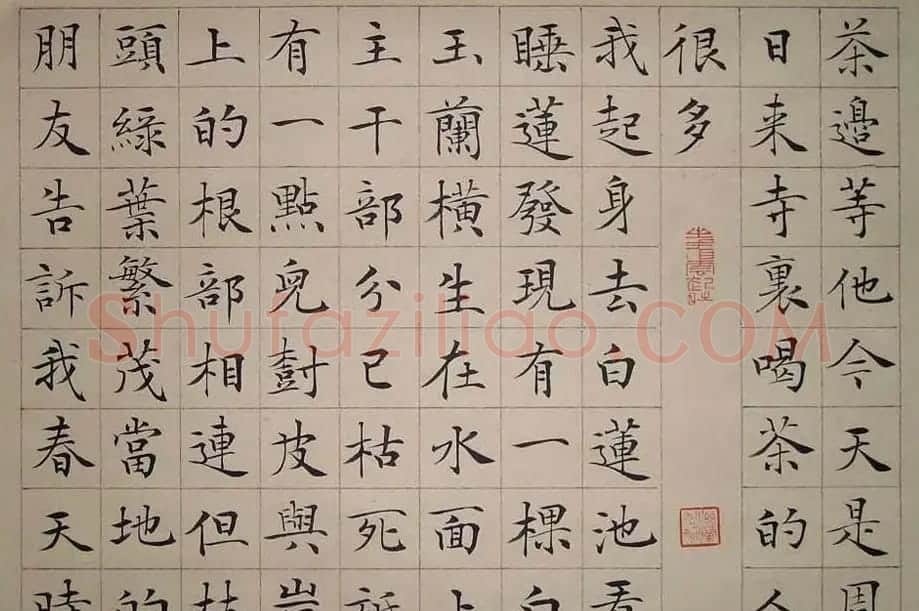 茶邊等他今天是周
日来寺裏喝茶的人
很多
我起身去白蓮池看
睡蓮發現有一棵白
玉蘭橫生在水面上
主干部分已枯死
有一點兒樹皮與岸
上的根部相連但枝
頭綠葉繁茂當地的
朋友告訴我春天時
Shufaziliao.COM